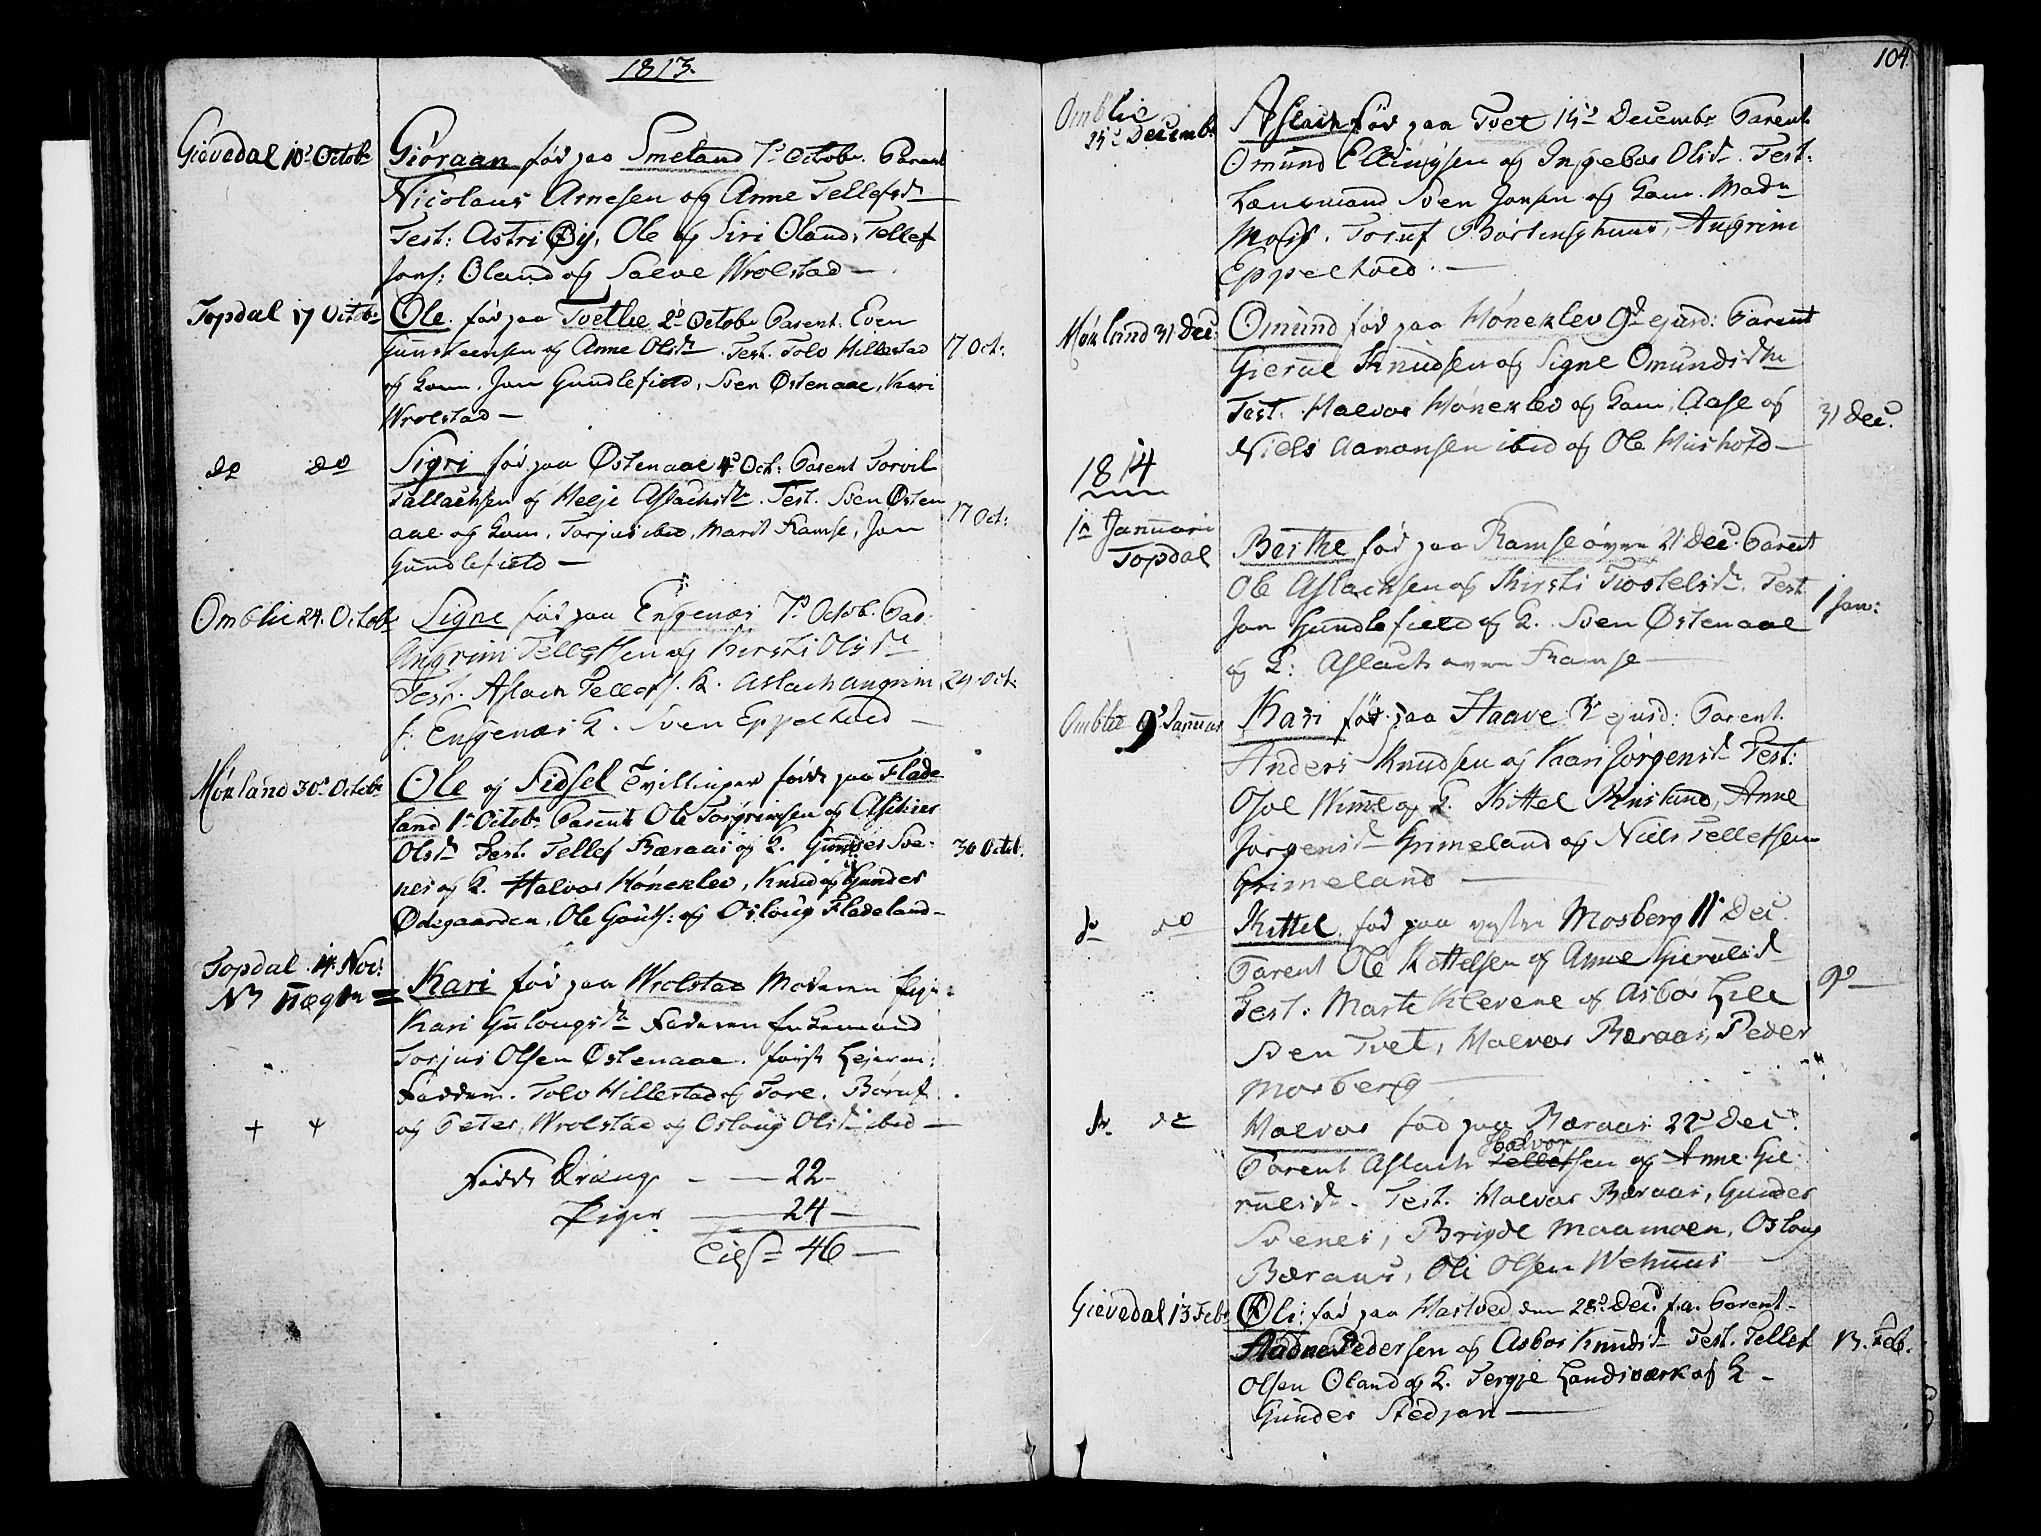 1813.
Gievedal 10d Octobr Giöraan fød paa Smeland 7d Octobr. Parent
Nicolaus Arnesen og Anne Tellefsdr
Test: Astri Øy, Ole og Siri Oland, Tellef
Jons: Oland og Salve Wrolstad —
Topdal 17 Octobr Ole fød paa Tvetlie 2d Octobr Parent. Even
Gunsteensen og Anne Olsdr Test. Tolv Hillestad 17 Oct:
og Kone, Jon Gundlefield, Sven Østenaae, Kari
Wrolstad —
do do Sigri fød paa Østenaae 4d Oct: Parent Torvil
Tallachsen og Helje Aslachsdr. Test. Sven Østen
aae og Kone, Torjus ibid, Marit Ramse, Jon 17 Oct:
Gundlefield —
Omblie 24. Octobr Signe fød paa Engenæs 7d Octob. Par:
Angrim Tellefsen og Kirsti Olsdr
Test. Aslach Tellefs. K. Aslach Angrim 24 Oct:
s: Engenæs K. Sven Eppelhved —
Mørland 30d Octobr Ole og Sidsel tvillinger fødde paa Flade
land 1d Octobr Parent Ole Torgrimsen og
Olsdr Test. Tellef Bæraas og K. Gunder Sve- 30 Octob.
nes og K. Halvor Høneklev, Knud og Gunder
Ødegaarden, Ole Gouts: og Oslaug Fladeland —
Topdal 14 Nov:
NB Uægte = Kari fød paa Wrolstad Moderen Pige
Kari Gulougsdr Faderen
Torjus Olsen Østenaae. første Lejerm:
Faddere. Tolv Hillestad og Tore. Børuf
+ + og Peter Wrolstad og Oslaug Olsdr ibid —
Fødde Drænge — 22 —
Piger — 24 —
46 —
104
Omblie
25d Decembr Aslach fød paa Tvet 15d Decembr Parent
Omund Ellingsen og Ingebor Olsdr. Test:
Lænsmand Sven Jonsen og Kone. Madm
Moss. Toruf Børtingshuus, Angrim
Eppelhved. —
Mørland 31 Dec: Omund fød paa Høneklev 9d ejusd: Parent
Gierul Knudsen og Signe Omundsdr
Test. Halvor Høneklev og Kone, Aase og 31 Dec.
Niels Aanonsen ibid og Ole Hushold —
1814
1d Januari
Topdal Berthe fød paa Ramse øvre 21 Dec. Parent
Ole Aslachsen og Kirsti Trostelsdr. Test 1 Jan:
Jon Gundlefield og K. Sven Østenaae
og K: Aslach øvre Ramse —
Omblie 9d Januar Kari fød paa Haave 3d ejusd: Parent.
Anders Knudsen og Kari Jørgensdr Test:
Osol Wimme og K. Kittel Risland, Anne
Jørgensdr Grimeland og Niels Tellefsen
Grimeland —
do do Kittel fød paa vestre Mosberg 11d Dec.
Parent Ole Kittelsen og Anne Gierulsdr
Test. Marte Klevene og Asbor Lille 9d —
Sven Tvet, Halvor Bæraas, Peder
Mosberg —
do do Halvor fød paa Bæraas 22d Dec:
Halvor
Parent Aslach Tellefsen og Anne Gie
rulsdr. Test. Halvor Bæraas, Gunder
Svenes, Brigde Maamoen, Oslaug
Bæraas, Oli Olsen Wehuus
Gievedal 13 Febr Oli: fød paa Hartved den 28d Dec: f.a. Parent —
Stadne Pedersen og Asbor Knudsdr Test. Tellef 13. Feb.
Olsen Oland og K. Tergje Landsværk og K —
Gunder Stedjan —